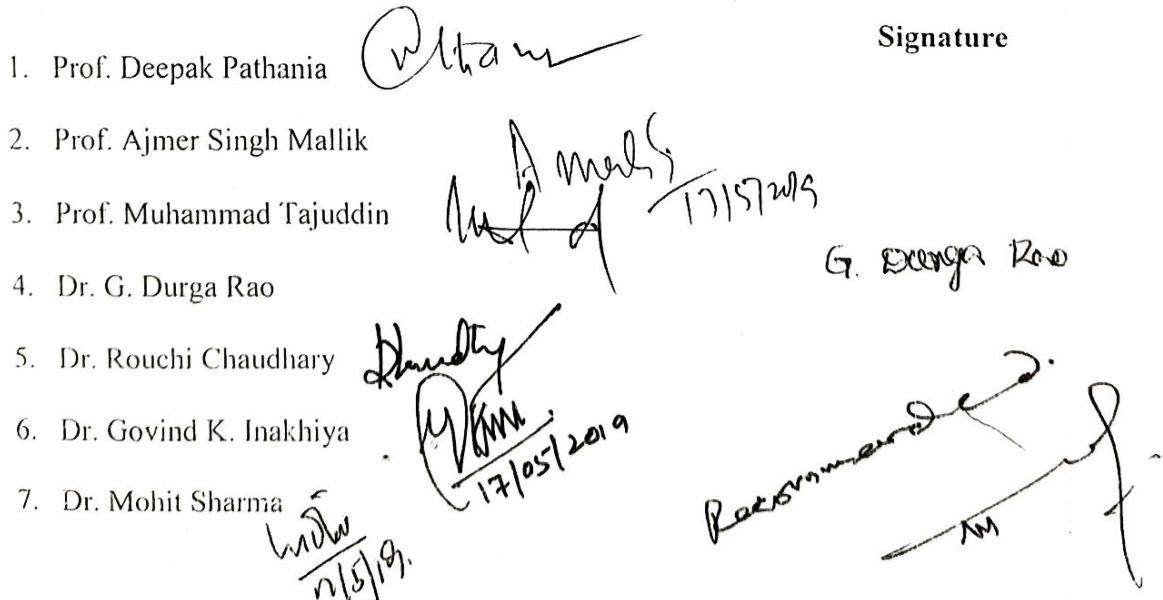 Signature
1. Prof. Deepak Pathania
2. Prof. Ajmer Singh Mallik
17/5/2019
3. Prof. Muhammad Tajuddin
G. Durga Rao
4. Dr. G. Durga Rao
5. Dr. Rouchi Chaudhary
6. Dr. Govind K. Inakhiya
17/05/2019
7. Dr. Mohit Sharma
17/5/19.
Recommended